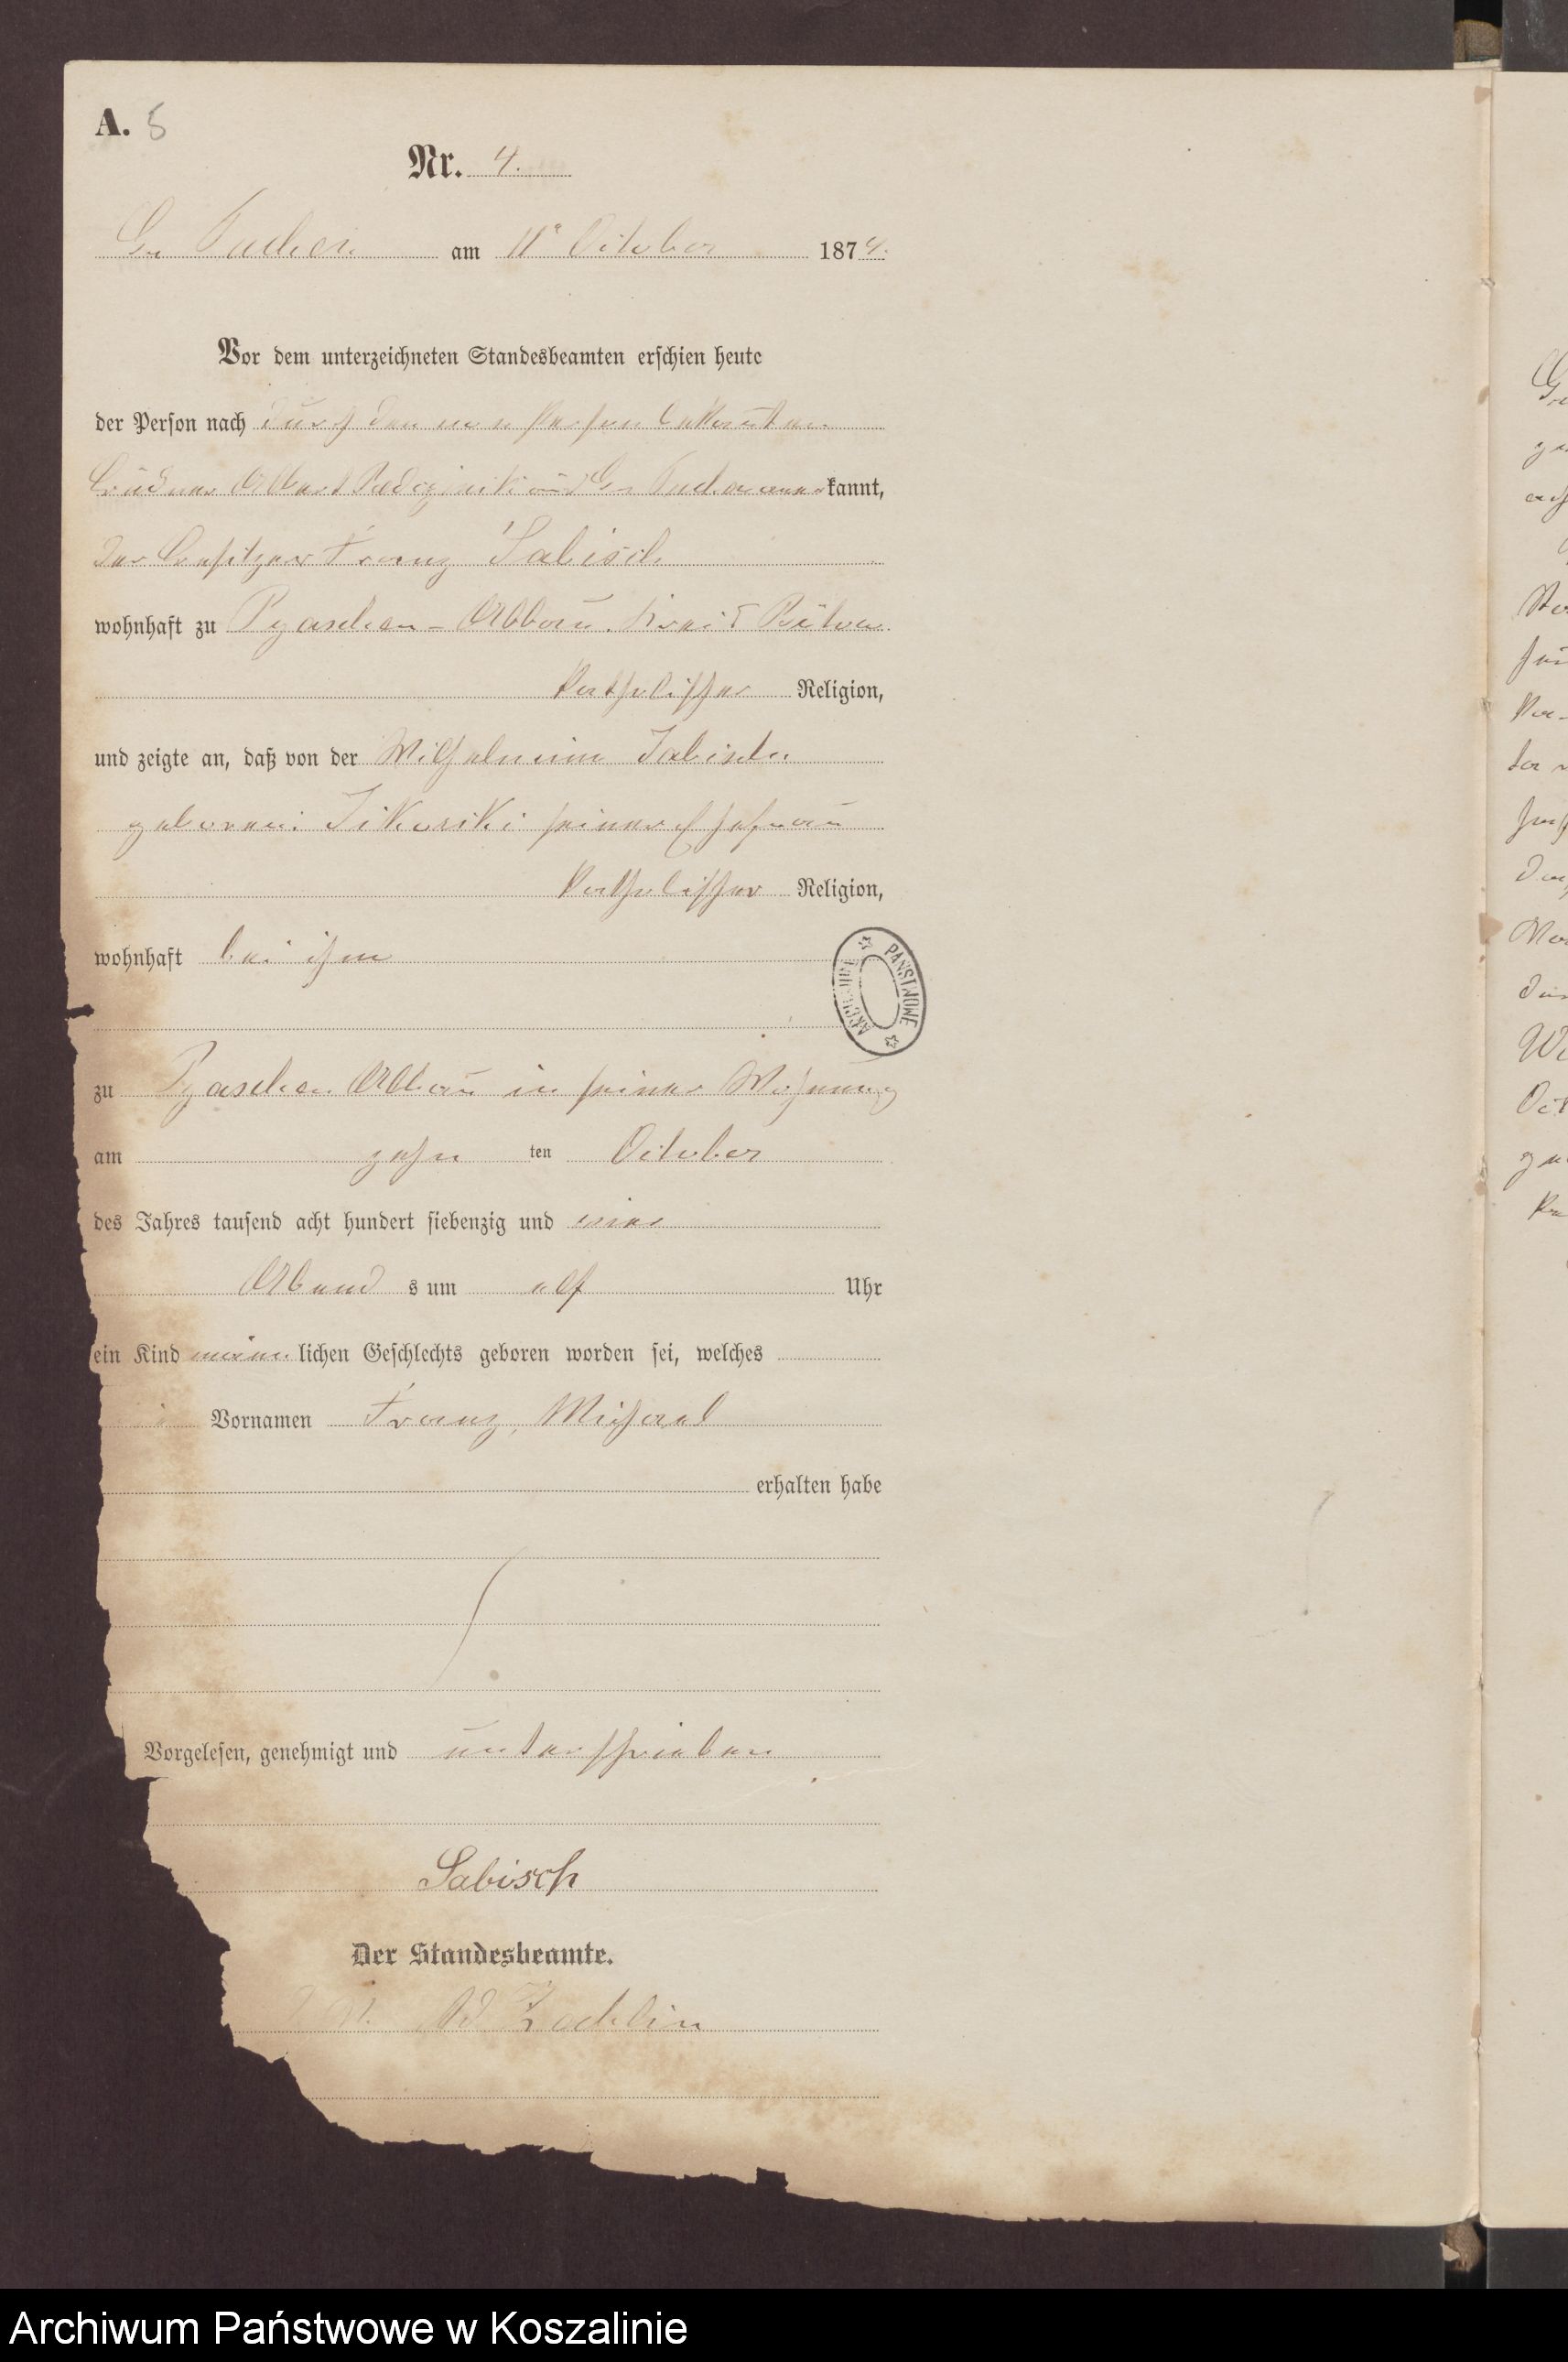 A. 5
Nr. 4.
Gr Tuchen am 11ᵗ October 1874.
Vor dem unterzeichneten Standesbeamten erschien heute
der Person nach durch den von Person bekannten
Büdner Albert aus Gr Tuchen anerkannt,
der Besitzer Franz Sabisch
wohnhaft zu Pyaschen-Abbau. Kreis Bütow
katholischer Religion,
und zeigte an, daß von der Wilhelmine Sabisch
geborene Sikorski seiner Ehefrau
katholischer Religion,
wohnhaft bei ihm
ARCHIWUM PAŃSTWOWE
zu Pyaschen Abbau in seiner Wohnung
am zehn ten October
des Jahres tausend acht hundert siebenzig und vier
Abend s um elf Uhr
ein Kind männlichen Geschlechts geboren worden sei, welches
Vornamen Franz, Michael
erhalten habe
Vorgelesen, genehmigt und unterschrieben
Sabisch
Der Standesbeamte.
Archiwum Państwowe w Koszalinie